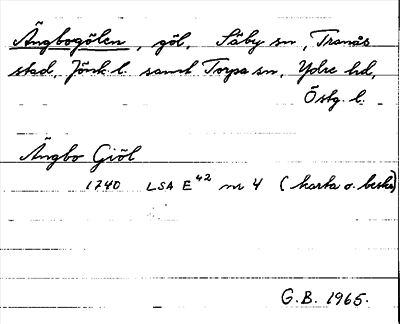 Ängbogölen, göl, Säby sn, Tranås
stad, Jönk. l. samt Torpa sn, Ydre hd,
Östg. l.
Ängbo Giöl
1740 LSA E42 nr 4 (karta o. beskr)
G.B. 1965.